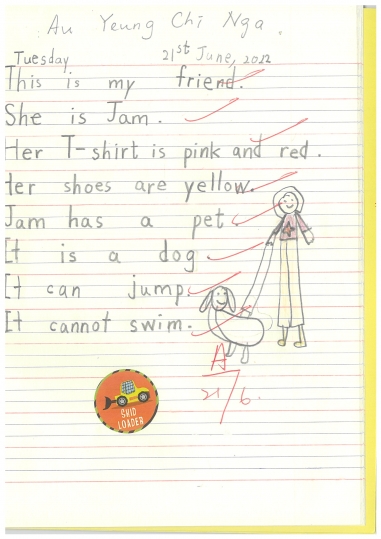 Au Yeung Chi Nga.
Tuesday 21st June, 2012
This is my friend.
She is Jam.
Her T-shirt is pink and red.
Her shoes are yellow.
Jam has a pet.
It is a dog
It can jump.
It cannot swim.
A
21/6.
SKID
LOADER